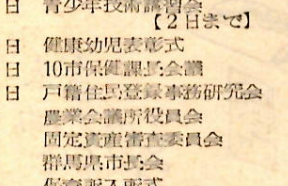 日 青少年技術講習会
【2日まで】
日 健康幼児表彰式
日 10市保健課長会議
日 戸籍住民登録事務研究会
農業会議所役員会
固定資産審査委員会
群馬県市長会
保育所入所式